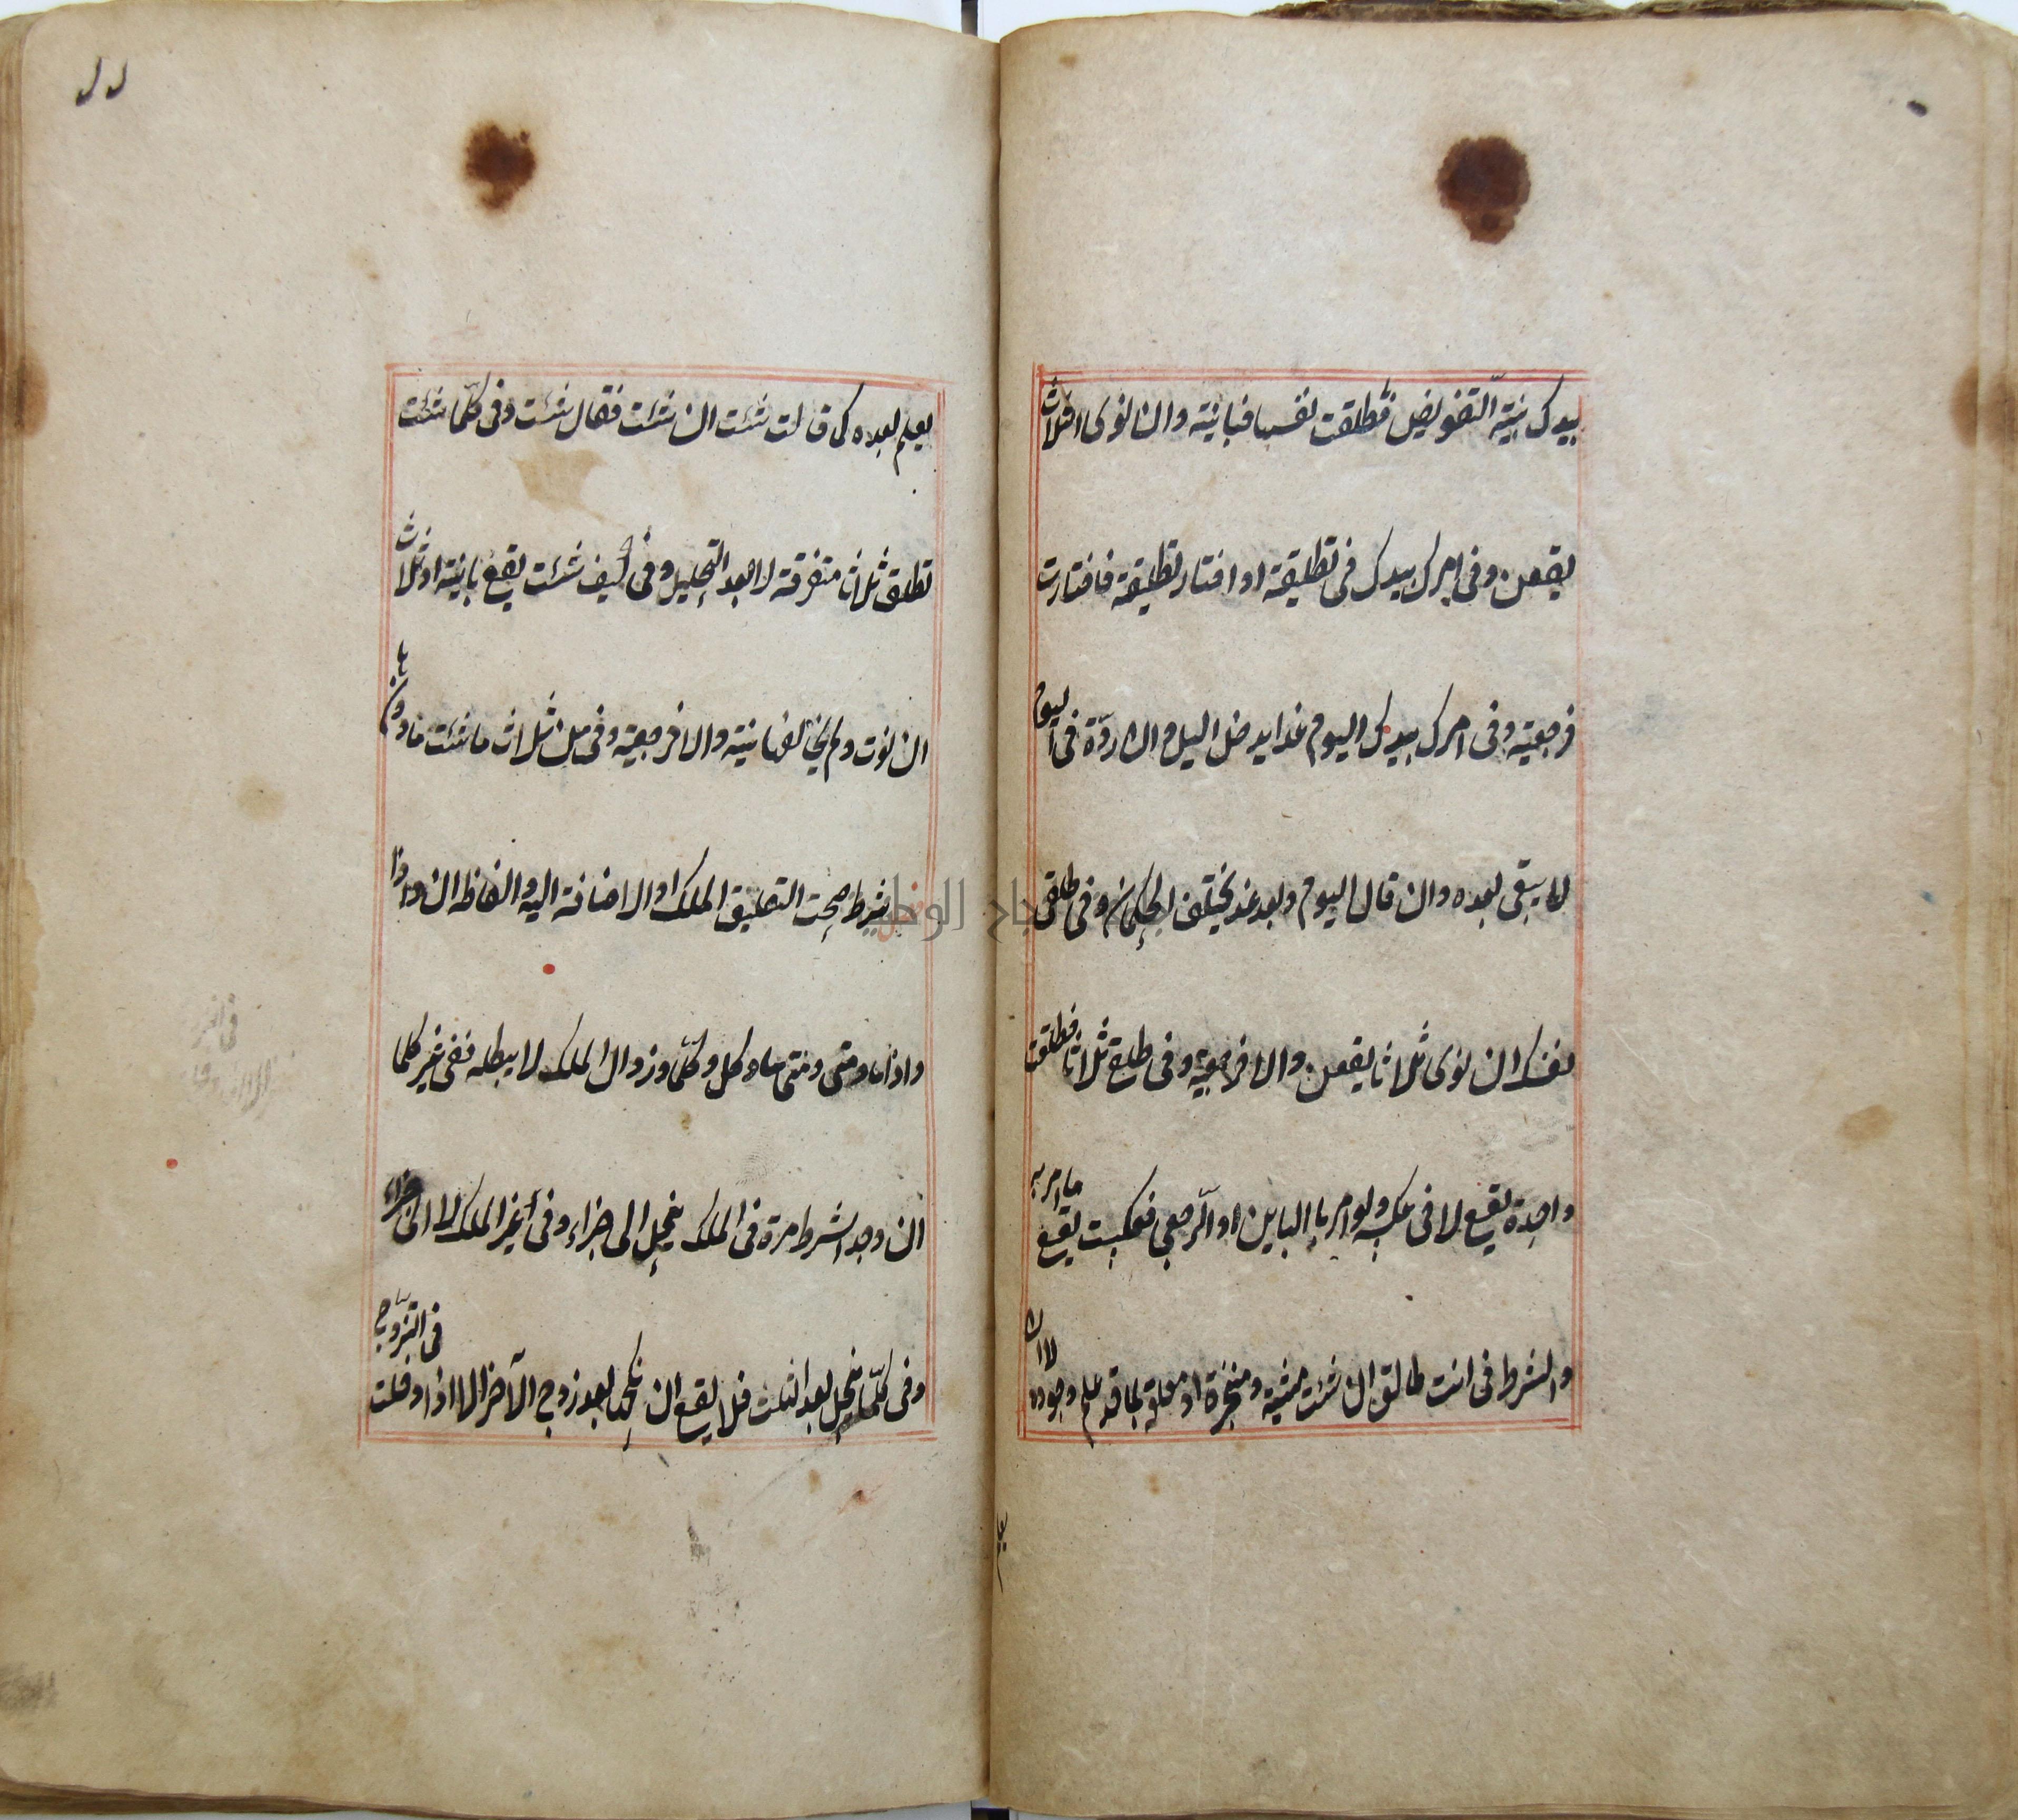 بيدك بنية التفويض فطلقت نفسها فبائنة وان نوى الثلاث
يقعن وفى امرك بيدك فى تطليقة او اختار تطليقة فاختارت
فرجعية وفى امرك بيدك اليوم وغدا يدخل الليل وان ردّة فى اليوم
لا يبقى بعده وان قال اليوم وبعد غد يختلف الحكمان وفى طلقى
نفسك ان نوى ثلاثا يقعن والا فرجعية وفى طلق ثلاثا فطلقت
واحدة يقع لا فى عكسه ولو امر بالباين او الرّجعى فعكست يقع ما امر به
والشرط فى انت طالق ان شئت مشية منجزة او معلقة بما قد علم وجوده لا ان
يعلم
يعلم بعده كى قالت شئت ان شئت فقال شئت وفى كلّما شئت
تطلق ثلاثا متفرقة لا بعد التحليل وفى كيف شئت يقع باينة او ثلاث
ان نوت ولم فباينة والا فرجعية وفى من ثلاث ما شئت مادون
شرط صحت التعليق الملك او الاضافة اليه والفاظه ان واذا
واذاما ومتى ومتى ما وكل وكلّما وزوال الملك لا يبطله ففى غير كلما
ان وجد الشرط مرة فى الملك ينحل الى جزاء وفى غير الملك لا الى جزاء
وفى كلّما ينحل بعد الثلث فلا يقع ان نكحها بعد زوج الآخر الا اذا دخلت فى التزوّج